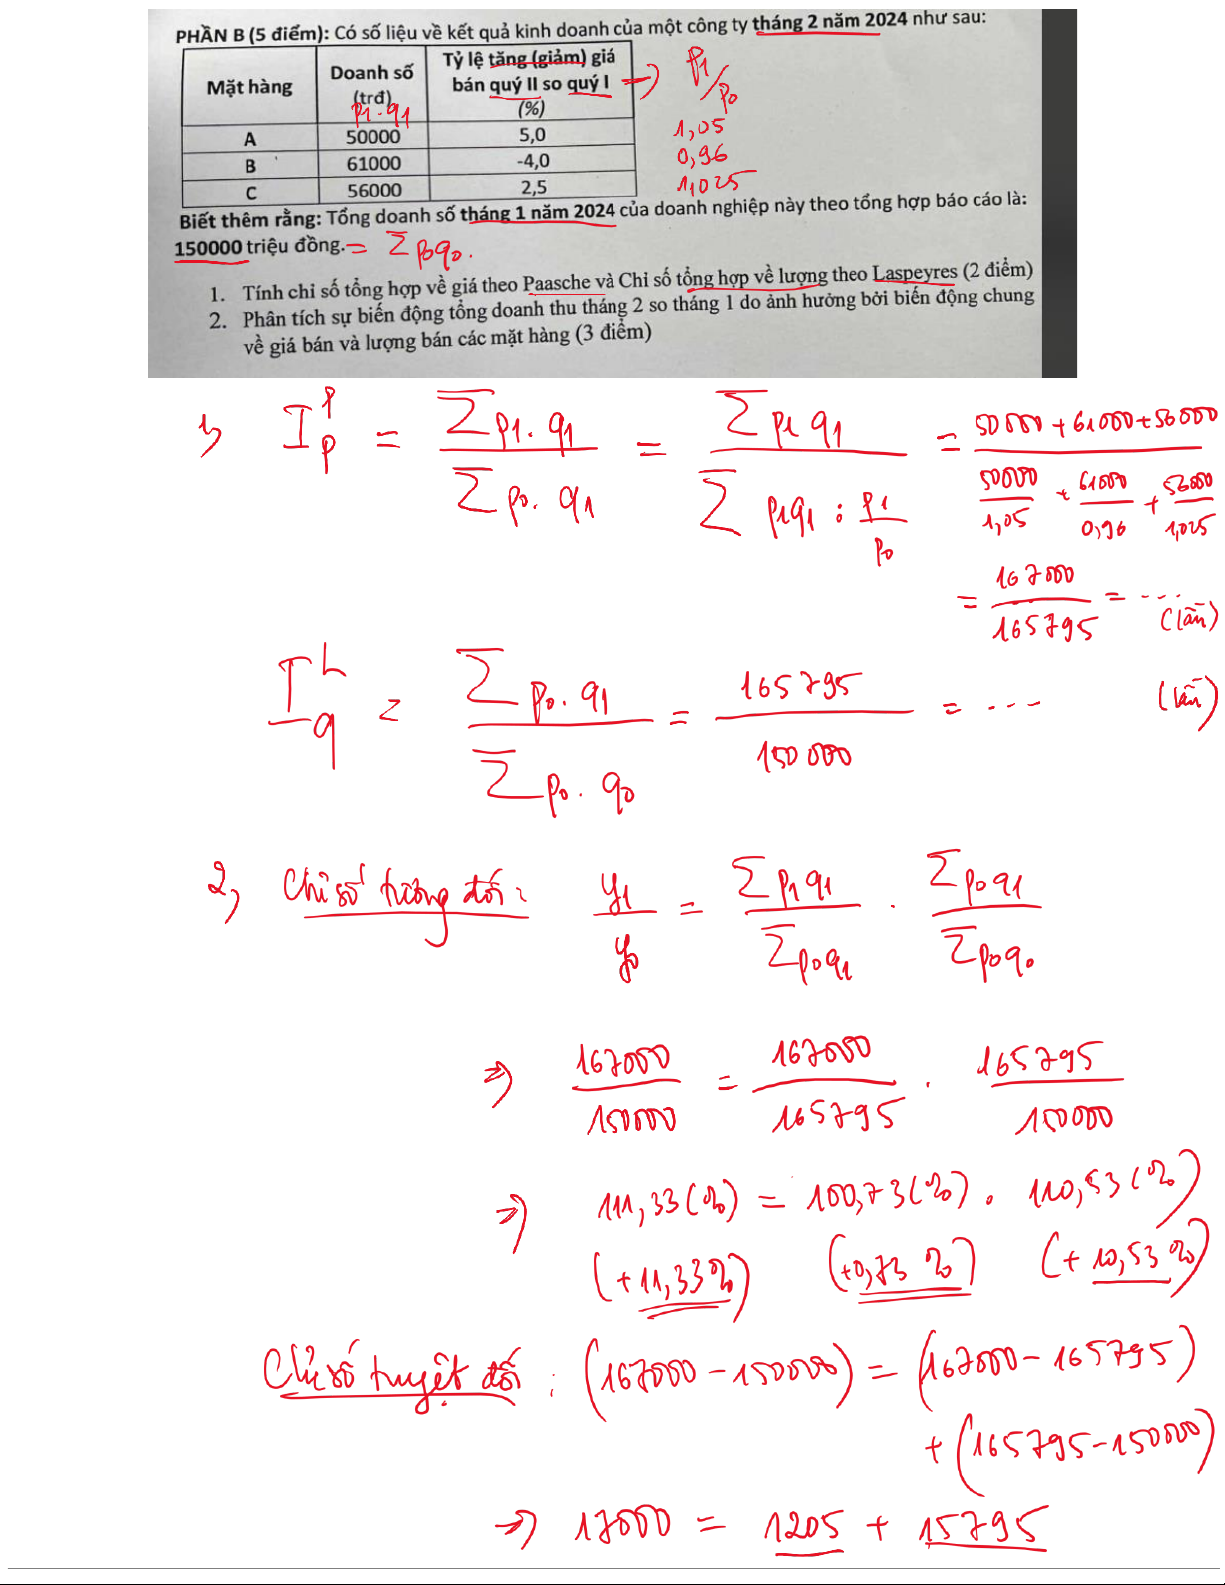 PHẦN B (5 điểm): Có số liệu về kết quả kinh doanh của một công ty tháng 2 năm 2024 như sau:
Mặt hàng Doanh số (trđ) Tỷ lệ tăng (giảm) giá bán quý II so quý I (%)
p1.q1
→ p1/p0
A 50000 5,0 1,05
B 61000 -4,0 0,96
C 56000 2,5 1,025
Biết thêm rằng: Tổng doanh số tháng 1 năm 2024 của doanh nghiệp này theo tổng hợp báo cáo là:
150000 triệu đồng. = Σp0q0.
1. Tính chỉ số tổng hợp về giá theo Paasche và Chỉ số tổng hợp về lượng theo Laspeyres (2 điểm)
2. Phân tích sự biến động tổng doanh thu tháng 2 so tháng 1 do ảnh hưởng bởi biến động chung
về giá bán và lượng bán các mặt hàng (3 điểm)
1) I_p^P = Σp1.q1 / Σp0.q1 = Σp1q1 / Σp1q1 : p1/p0 = (50000 + 61000 + 56000) / (50000/1,05 + 61000/0,96 + 56000/1,025)
= 167000/165795 = ... (lần)
I_q^L = Σp0.q1 / Σp0.q0 = 165795/150000 = ... (lần)
2) Chỉ số tương đối: y1/y0 = Σp1q1/Σp0q1 . Σp0q1/Σp0q0
⇒ 167000/150000 = 167000/165795 . 165795/150000
⇒ 111,33(%) = 100,73(%) . 110,53(%)
(+11,33%) (+0,73%) (+10,53%)
Chỉ số tuyệt đối: (167000 - 150000) = (167000 - 165795)
+ (165795 - 150000)
⇒ 17000 = 1205 + 15795